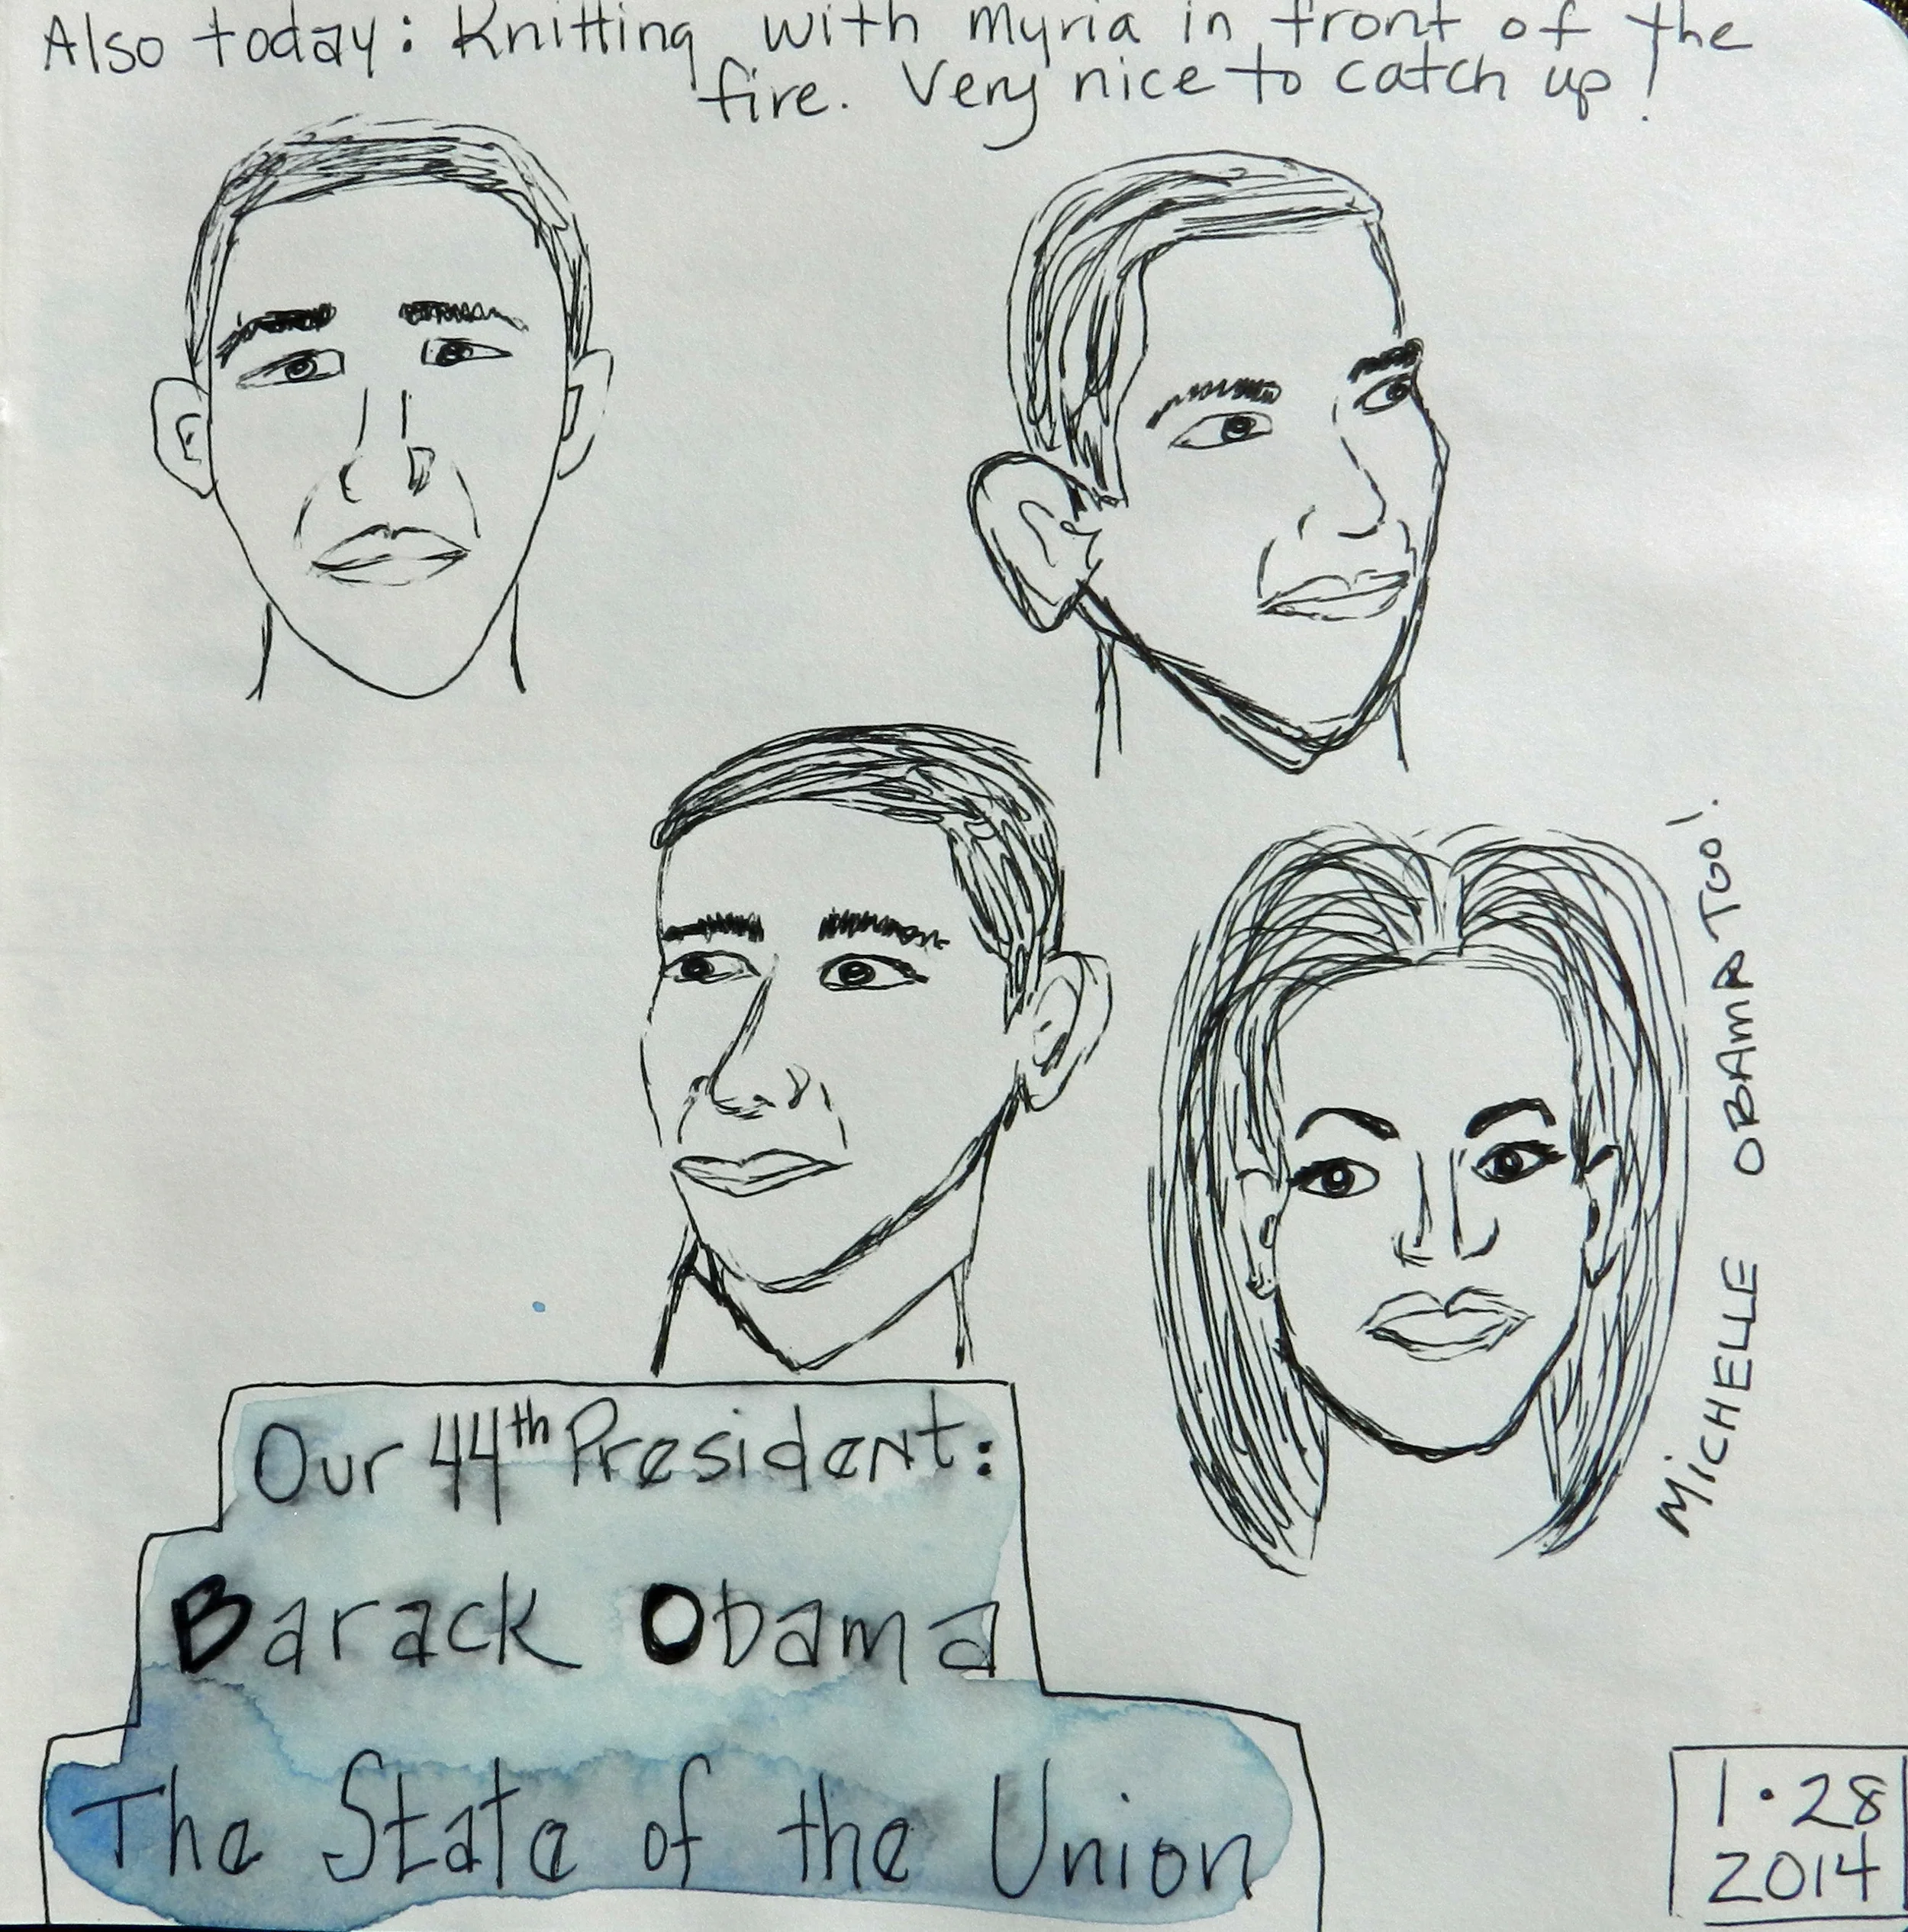 Also today: Knitting with Myria in front of the
fire. Very nice to catch up!
MiCHELLE OBAMA TOO!
Our 44th President:
Barack Obama
The State of the Union
1·28
2014